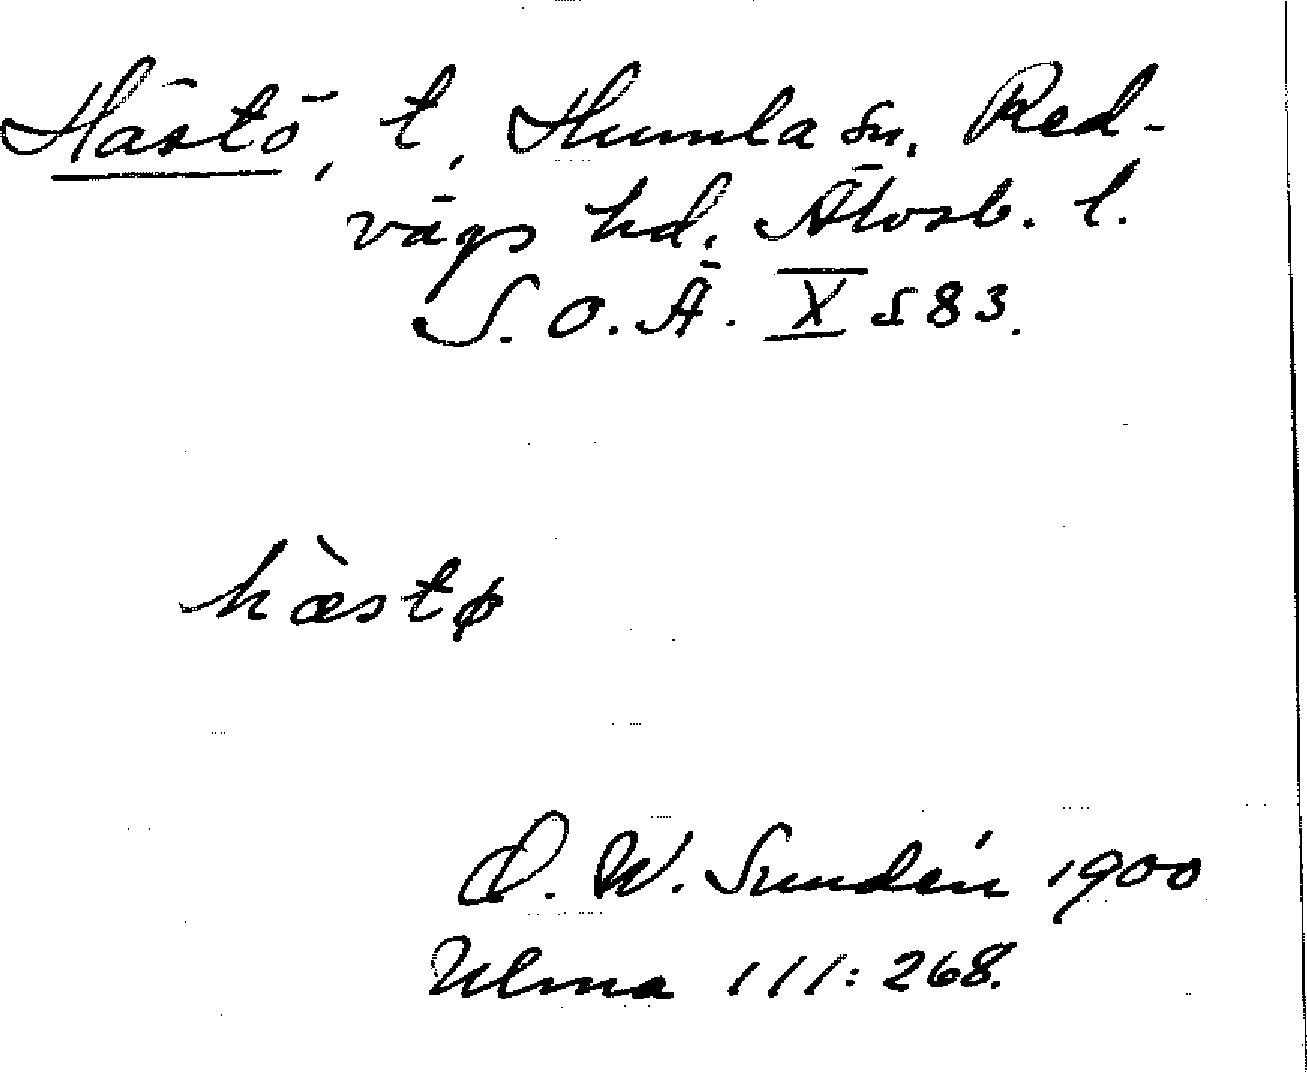 Hästö, t, Humla sn. Red-
vägs hd, Älvsb. l.
S. O. Ä. X s 83.
hæ̀stø
D. W. Sundén 1900
Ulma 111:268.